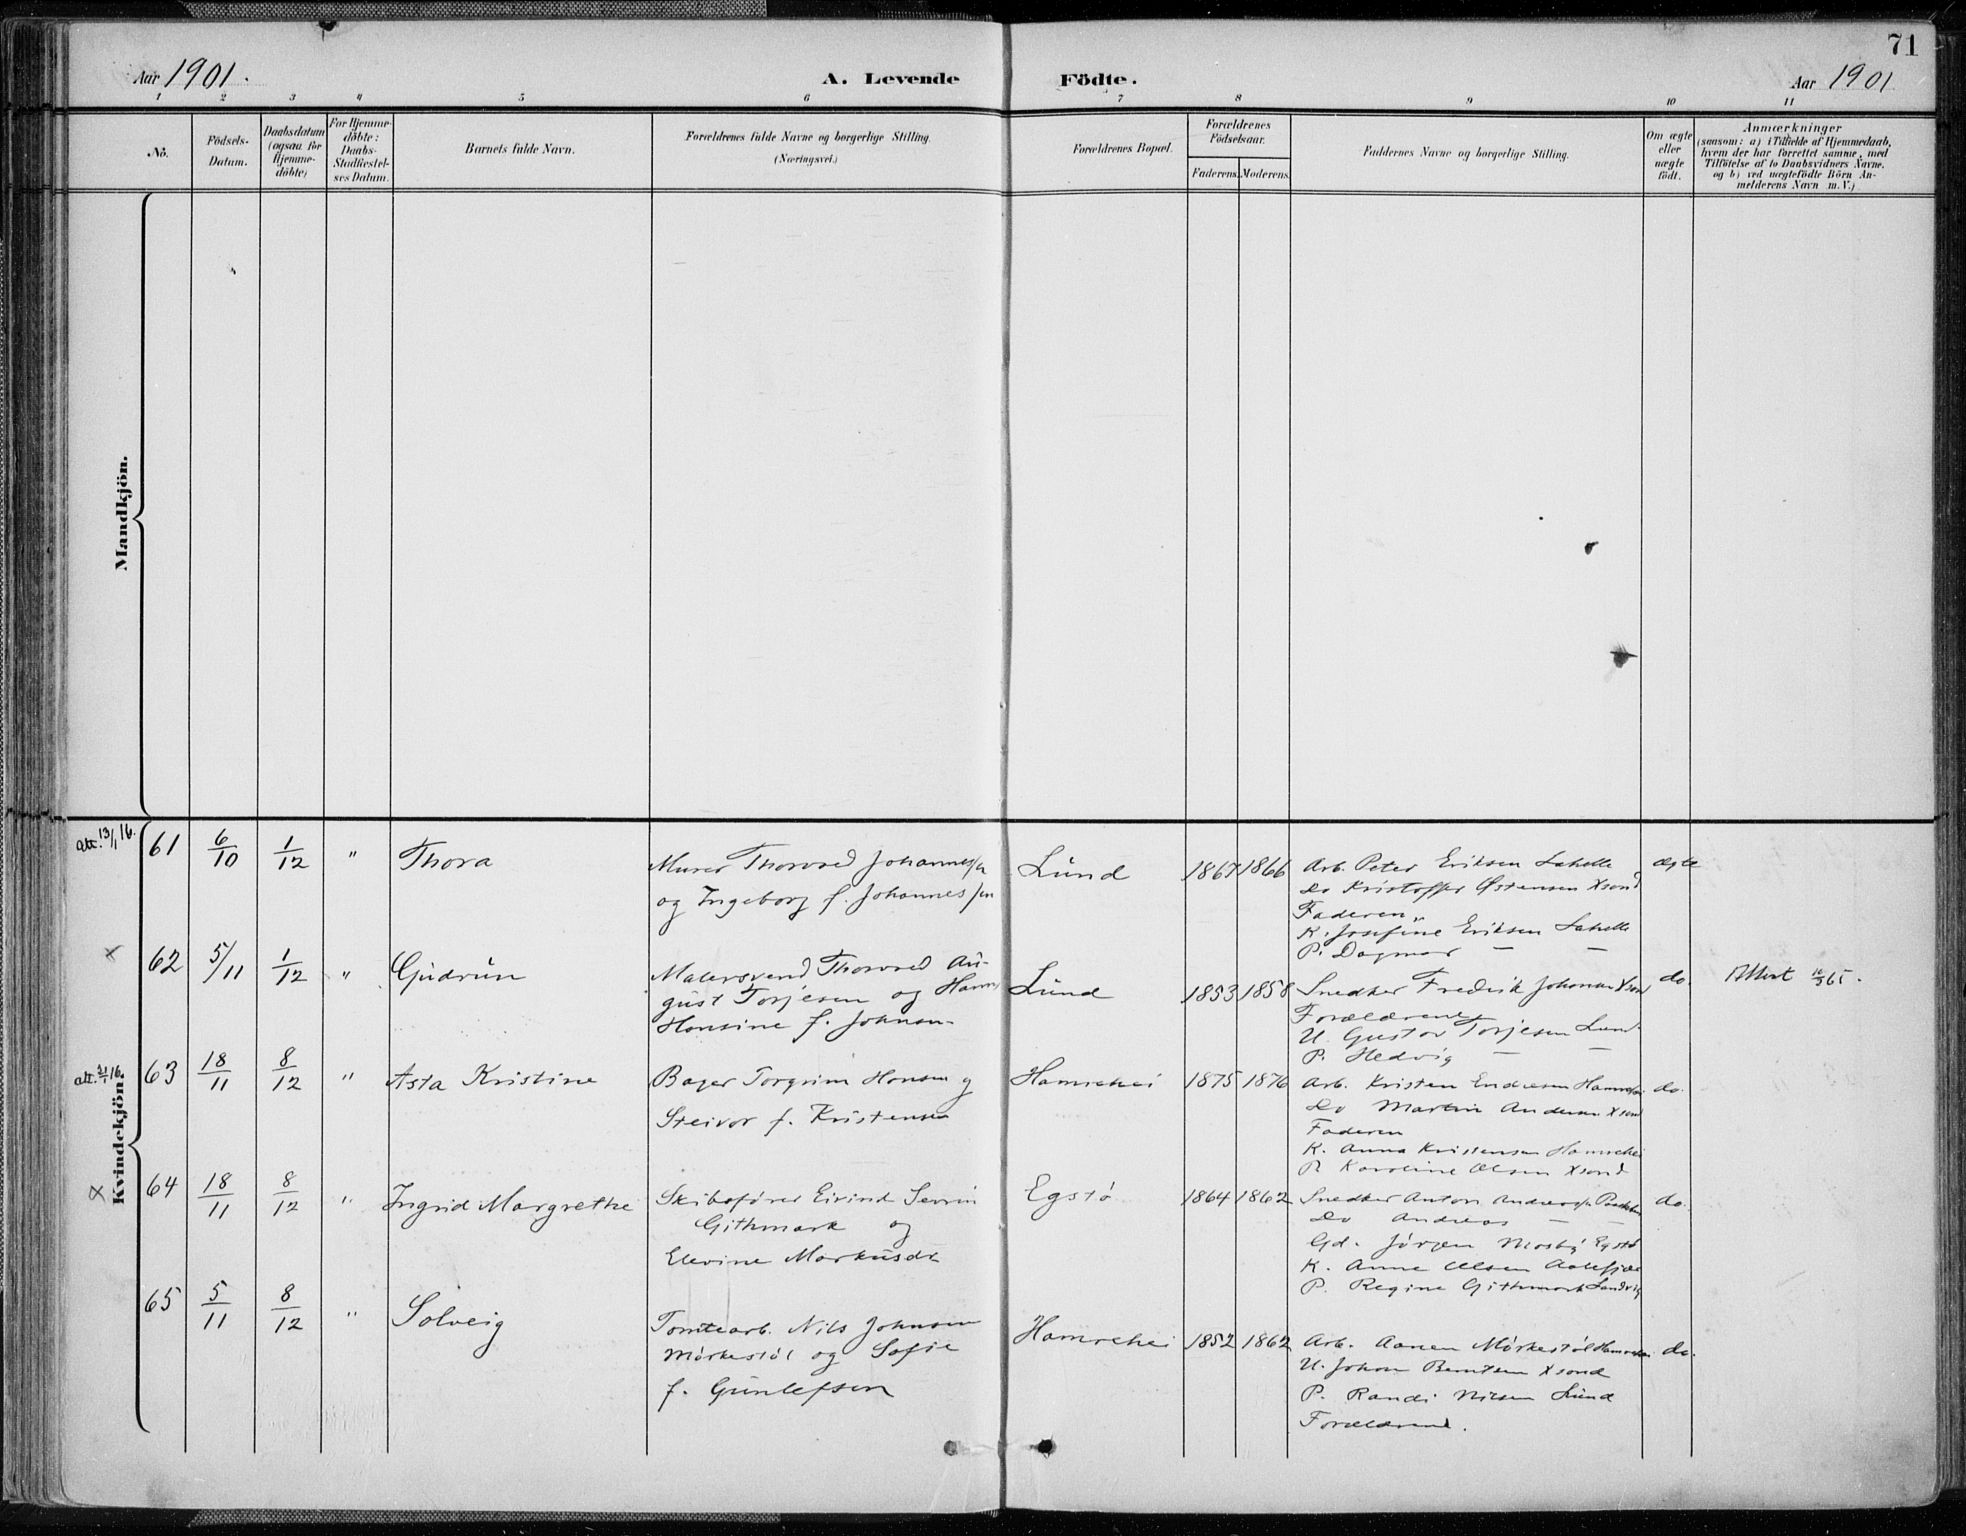 71
Aar 1901.
A. Levende Födte.
Aar 1901
1 2 3 4 5 6 7 8 9 10 11
No.
Födsels-
Datum.
Daabsdatum
(ogsaa for
Hjemme-
döbte)
For Hjemme-
döbte:
Daabs-
Stadfæstel-
ses Datum.
Barnets fulde Navn.
Forældrenes fulde Navne og borgerlige Stilling.
(Næringsvei.)
Forældrenes Bopæl.
Forældrenes
Födselsaar.
Faderens. Moderens.
Faddernes Navne og borgerlige Stilling.
Om ægte
eller
uægte
födt.
Anmærkninger
(saasom: a) i Tilfælde af Hjemmedaab,
hvem der har forrettet samme, med
Tilföielse af to Daabsvidners Navne.
og b) ved uægtefödte Börn An-
melderens Navn m. V.)
Mandkjön.
Kvindekjön.
att. 13/1 16.
61 6/10 1/12 "
Thora
Murer Thorved Johannessen
og Ingeborg f. Johannessen
Lund
1867 1866
Arb. Peter Eriksen Lahelle
Do Kristoffer Østensen Xsand
Faderen
K. Josefine Eriksen Lahelle
P. Dagmar — —
ægte
x
62 5/11 1/12 "
Gudrun
Malersvend Thorved Au-
gust Torjesen og Hanne
Hansine f. Johnsen
Lund
1853 1858
Snedker Fredrik Johansen Xsand
Forældrene
U. Gustav Torjesen Lund
P. Hedvig — —
do.
Attest 10/3 65.
att. 21/1 16.
63 18/11 8/12 "
Asta Kristine
Bager Torgrim Hansen og
Steivor f. Kristensen
Hamrehei
1875 1876
Arb. Kristen Endresen Hamrehei
Do Martin Andersen Xsand
Faderen
K. Anna Kristensen Hamrehei
P. Karoline Olsen Xsand
do.
x
64 18/11 8/12 "
Ingrid Margrethe
Skibsfører Eivind Severin
Githmark og
Elevine Markusdr
Egstø
1864 1862
Snedker Anton Andreassen
Do Andreas — —
Gd. Jørgen Mosby Egstø
K. Anne Olsen Aalefjær
P. Regine Githmark Sandvig
do.
65 5/11 8/12 "
Solveig
Tomtearb. Nils Johnsen
Mørkestøl og Sofie
f. Gunlefsen
Hamrehei
1852 1862
Arb. Aanen Mørkestøl Hamrehei
U. Johan Berntsen Xsand
P. Randi Nilsen Lund
Forældrene.
do.